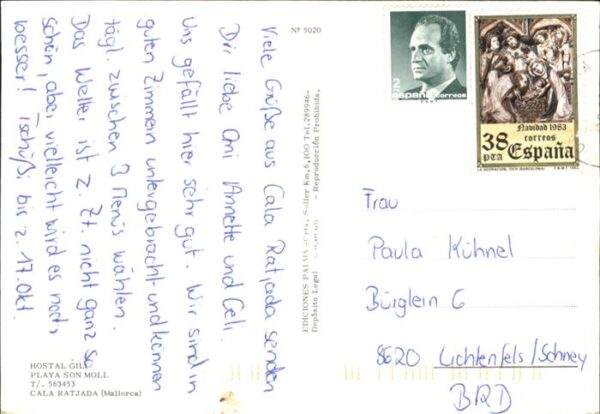 Viele Grüße aus Cala Ratjada senden
Dir liebe Omi Annette und Celi.
Uns gefällt hier sehr gut. Wir sind in
guten Zimmern untergebracht und können
tägl. zwischen 3 Menüs wählen.
Das Wetter ist z. Zt. nicht ganz so
schön, aber vielleicht wird es noch
besser! Tschüß, bis z. 17. Okt.
HOSTAL GILI
PLAYA SON MOLL
T/. 563453
CALA RATJADA (Mallorca)
Nº 5020
EDICIONES PALMA -Crta. Soller Km,6,100 Tel.289946-
Depósito Legal - Reproducción Prohibida.
2
españa correos
Navidad 1983
correos
38 PTA España
Frau
Paula Kühnel
Bürglein 6
8620 Lichtenfels/Schney
BRD